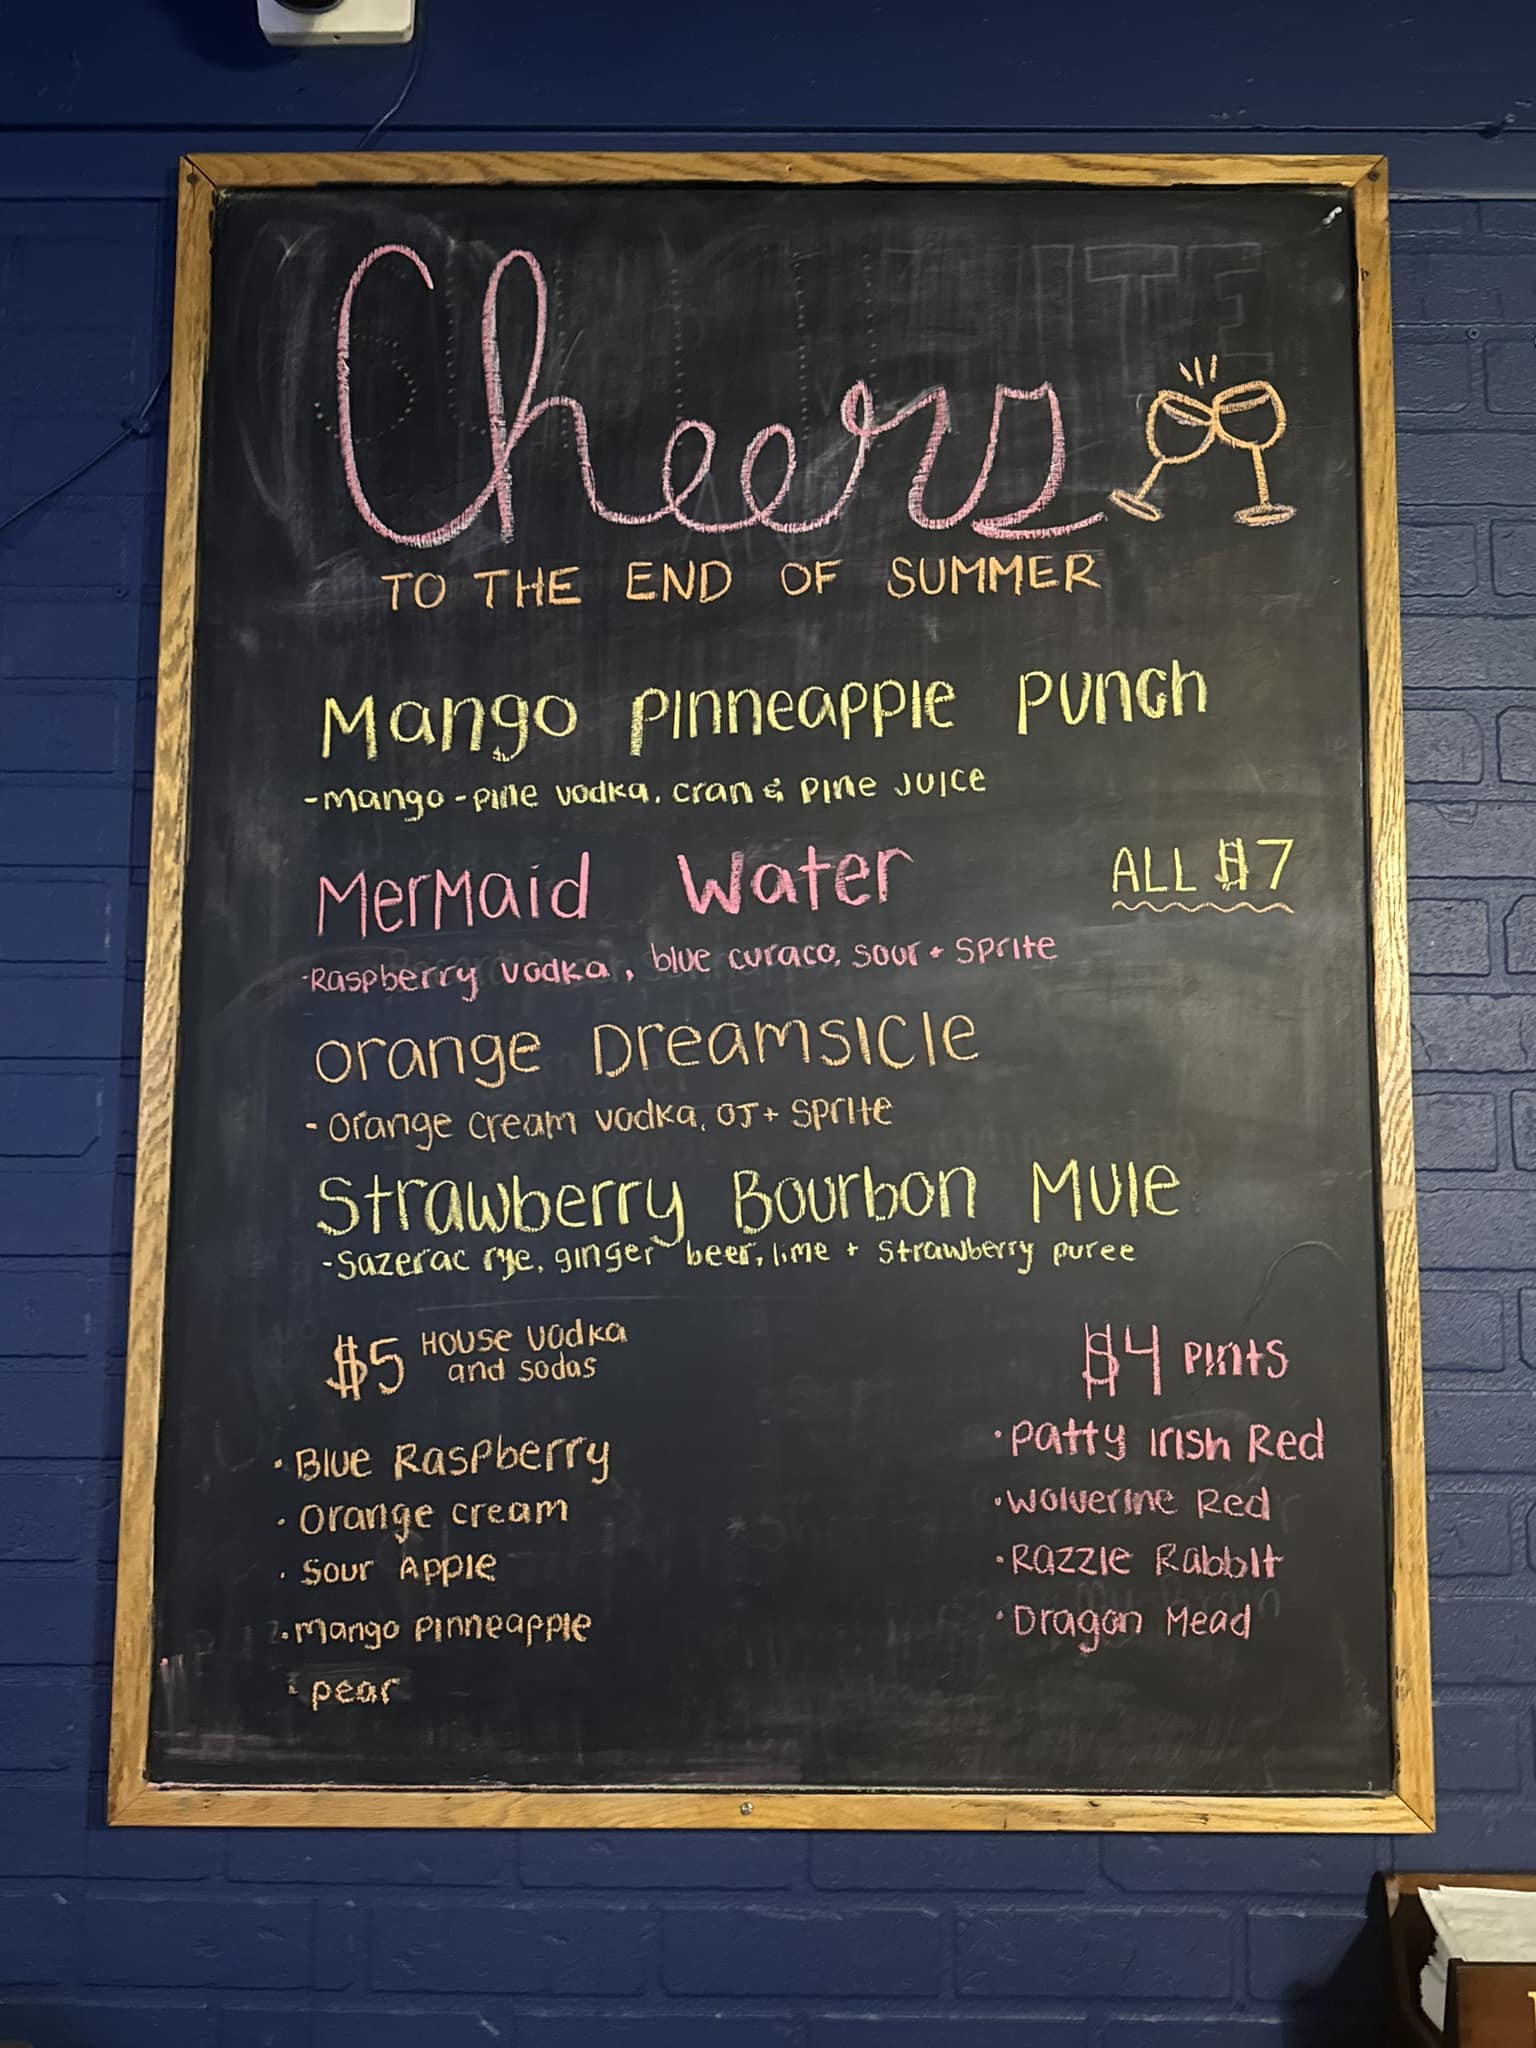 Cheers
TO THE END OF SUMMER
Mango Pinneapple Punch
-mango-pine vodka, cran & pine juice
Mermaid Water
ALL $7
-Raspberry vodka, blue curaco, sour + sprite
Orange Dreamsicle
- Orange cream vodka, OJ + sprite
Strawberry Bourbon Mule
-Sazerac rye, ginger beer, lime + strawberry puree
$5 House vodka
and sodas
• Blue Raspberry
• Orange cream
• Sour Apple
• mango pinneapple
• pear
$4 pints
• Patty Irish Red
• Wolverine Red
• Razzle Rabbit
• Dragon Mead